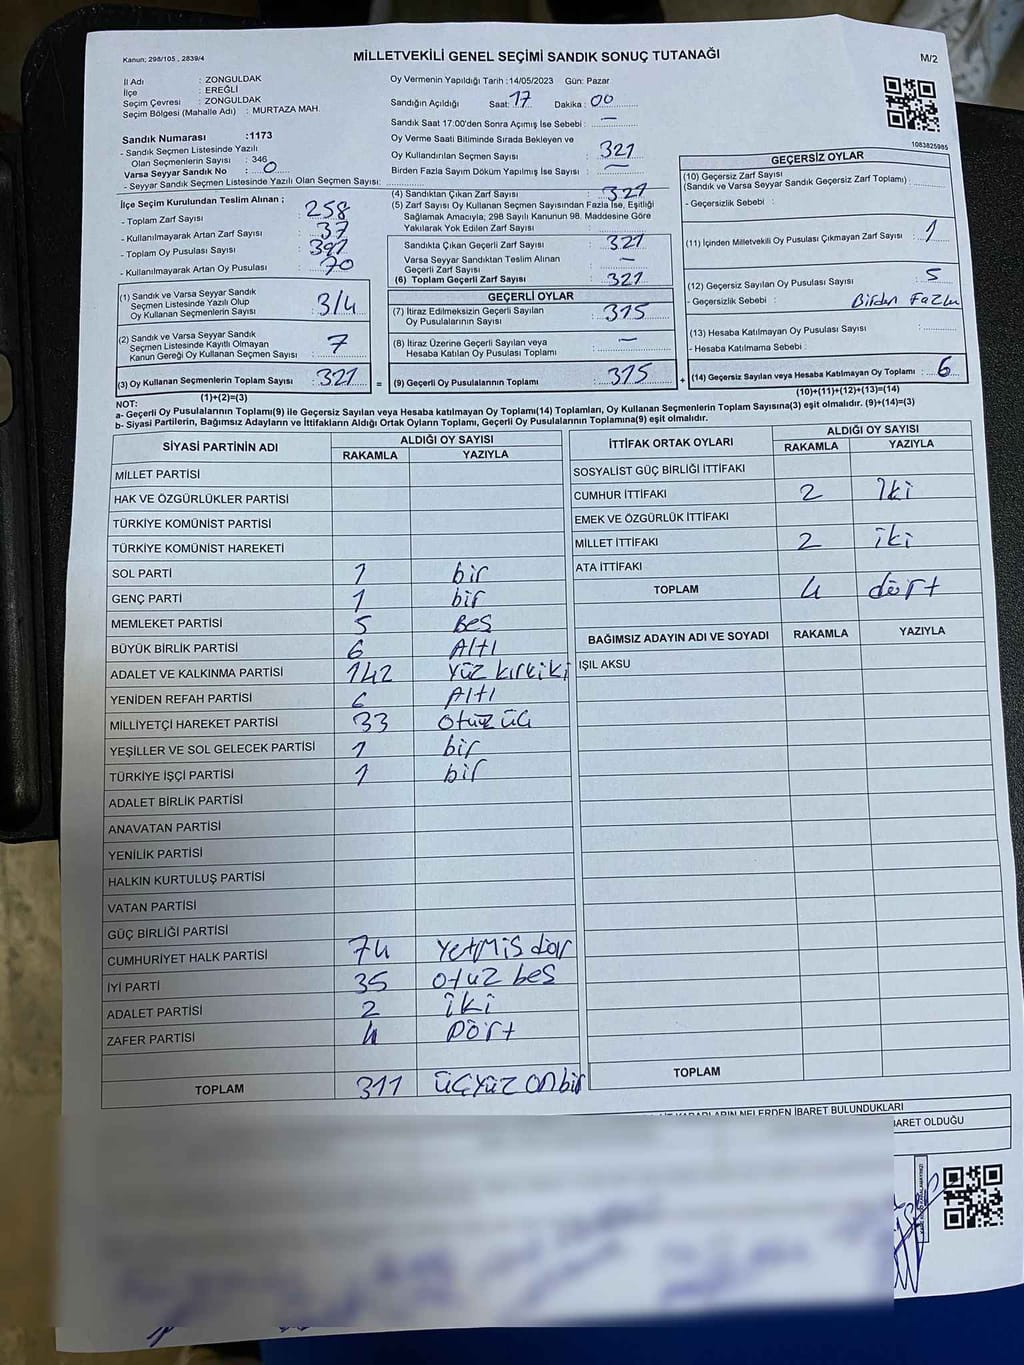 Kanun; 298/105 , 2839/4
MİLLETVEKİLİ GENEL SEÇİMİ SANDIK SONUÇ TUTANAĞI
M/2
İl Adı : ZONGULDAK
İlçe : EREĞLİ
Seçim Çevresi : ZONGULDAK
Seçim Bölgesi (Mahalle Adı) : MURTAZA MAH.
Sandık Numarası :1173
- Sandık Seçmen Listesinde Yazılı
Olan Seçmenlerin Sayısı : 346
Varsa Seyyar Sandık No : 0
- Seyyar Sandık Seçmen Listesinde Yazılı Olan Seçmen Sayısı:
Oy Vermenin Yapıldığı Tarih :14/05/2023 Gün: Pazar
Sandığın Açıldığı Saat: 17 Dakika : 00
Sandık Saat 17:00'den Sonra Açılmış İse Sebebi : —
Oy Verme Saati Bitiminde Sırada Bekleyen ve
Oy Kullandırılan Seçmen Sayısı : 321
Birden Fazla Sayım Döküm Yapılmış İse Sayısı :
1083825985
İlçe Seçim Kurulundan Teslim Alınan ;
- Toplam Zarf Sayısı : 258
- Kullanılmayarak Artan Zarf Sayısı : 37
- Toplam Oy Pusulası Sayısı : 391
- Kullanılmayarak Artan Oy Pusulası : 70
(1) Sandık ve Varsa Seyyar Sandık
Seçmen Listesinde Yazılı Olup
Oy Kullanan Seçmenlerin Sayısı : 314
(2) Sandık ve Varsa Seyyar Sandık
Seçmen Listesinde Kayıtlı Olmayan
Kanun Gereği Oy Kullanan Seçmen Sayısı : 7
(3) Oy Kullanan Seçmenlerin Toplam Sayısı : 321 =
(1)+(2)=(3)
(4) Sandıktan Çıkan Zarf Sayısı : 321
(5) Zarf Sayısı Oy Kullanan Seçmen Sayısından Fazla İse, Eşitliği
Sağlamak Amacıyla; 298 Sayılı Kanunun 98. Maddesine Göre
Yakılarak Yok Edilen Zarf Sayısı :
Sandıkta Çıkan Geçerli Zarf Sayısı : 321
Varsa Seyyar Sandıktan Teslim Alınan
Geçerli Zarf Sayısı : —
(6) Toplam Geçerli Zarf Sayısı : 321
GEÇERLİ OYLAR
(7) İtiraz Edilmeksizin Geçerli Sayılan
Oy Pusulalarının Sayısı : 315
(8) İtiraz Üzerine Geçerli Sayılan veya
Hesaba Katılan Oy Pusulası Toplamı : —
(9) Geçerli Oy Pusulalarının Toplamı : 315 +
GEÇERSİZ OYLAR
(10) Geçersiz Zarf Sayısı
(Sandık ve Varsa Seyyar Sandık Geçersiz Zarf Toplamı) :
- Geçersizlik Sebebi :
(11) İçinden Milletvekili Oy Pusulası Çıkmayan Zarf Sayısı : 1
(12) Geçersiz Sayılan Oy Pusulası Sayısı : 5
- Geçersizlik Sebebi : Birden Fazla
(13) Hesaba Katılmayan Oy Pusulası Sayısı :
- Hesaba Katılmama Sebebi :
(14) Geçersiz Sayılan veya Hesaba Katılmayan Oy Toplamı : 6
(10)+(11)+(12)+(13)=(14)
NOT:
a- Geçerli Oy Pusulalarının Toplamı(9) ile Geçersiz Sayılan veya Hesaba katılmayan Oy Toplamı(14) Toplamları, Oy Kullanan Seçmenlerin Toplam Sayısına(3) eşit olmalıdır. (9)+(14)=(3)
b- Siyasi Partilerin, Bağımsız Adayların ve İttifakların Aldığı Ortak Oyların Toplamı, Geçerli Oy Pusulalarının Toplamına(9) eşit olmalıdır.
SİYASİ PARTİNİN ADI ALDIĞI OY SAYISI
RAKAMLA YAZIYLA
MİLLET PARTİSİ
HAK VE ÖZGÜRLÜKLER PARTİSİ
TÜRKİYE KOMÜNİST PARTİSİ
TÜRKİYE KOMÜNİST HAREKETİ
SOL PARTİ 1 bir
GENÇ PARTİ 1 bir
MEMLEKET PARTİSİ 5 Beş
BÜYÜK BİRLİK PARTİSİ 6 Altı
ADALET VE KALKINMA PARTİSİ 142 Yüz kırkiki
YENİDEN REFAH PARTİSİ 6 Altı
MİLLİYETÇİ HAREKET PARTİSİ 33 otuz üç
YEŞİLLER VE SOL GELECEK PARTİSİ 1 bir
TÜRKİYE İŞÇİ PARTİSİ 1 bir
ADALET BİRLİK PARTİSİ
ANAVATAN PARTİSİ
YENİLİK PARTİSİ
HALKIN KURTULUŞ PARTİSİ
VATAN PARTİSİ
GÜÇ BİRLİĞİ PARTİSİ
CUMHURİYET HALK PARTİSİ 74 Yetmiş dör
İYİ PARTİ 35 otuz beş
ADALET PARTİSİ 2 iki
ZAFER PARTİSİ 4 Dört
TOPLAM 311 üçyüz onbir
İTTİFAK ORTAK OYLARI ALDIĞI OY SAYISI
RAKAMLA YAZIYLA
SOSYALİST GÜÇ BİRLİĞİ İTTİFAKI
CUMHUR İTTİFAKI 2 iki
EMEK VE ÖZGÜRLÜK İTTİFAKI
MİLLET İTTİFAKI 2 iki
ATA İTTİFAKI
TOPLAM 4 dört
BAĞIMSIZ ADAYIN ADI VE SOYADI RAKAMLA YAZIYLA
IŞIL AKSU
TOPLAM
KARARLARIN NELERDEN İBARET BULUNDUKLARI
İBARET OLDUĞU